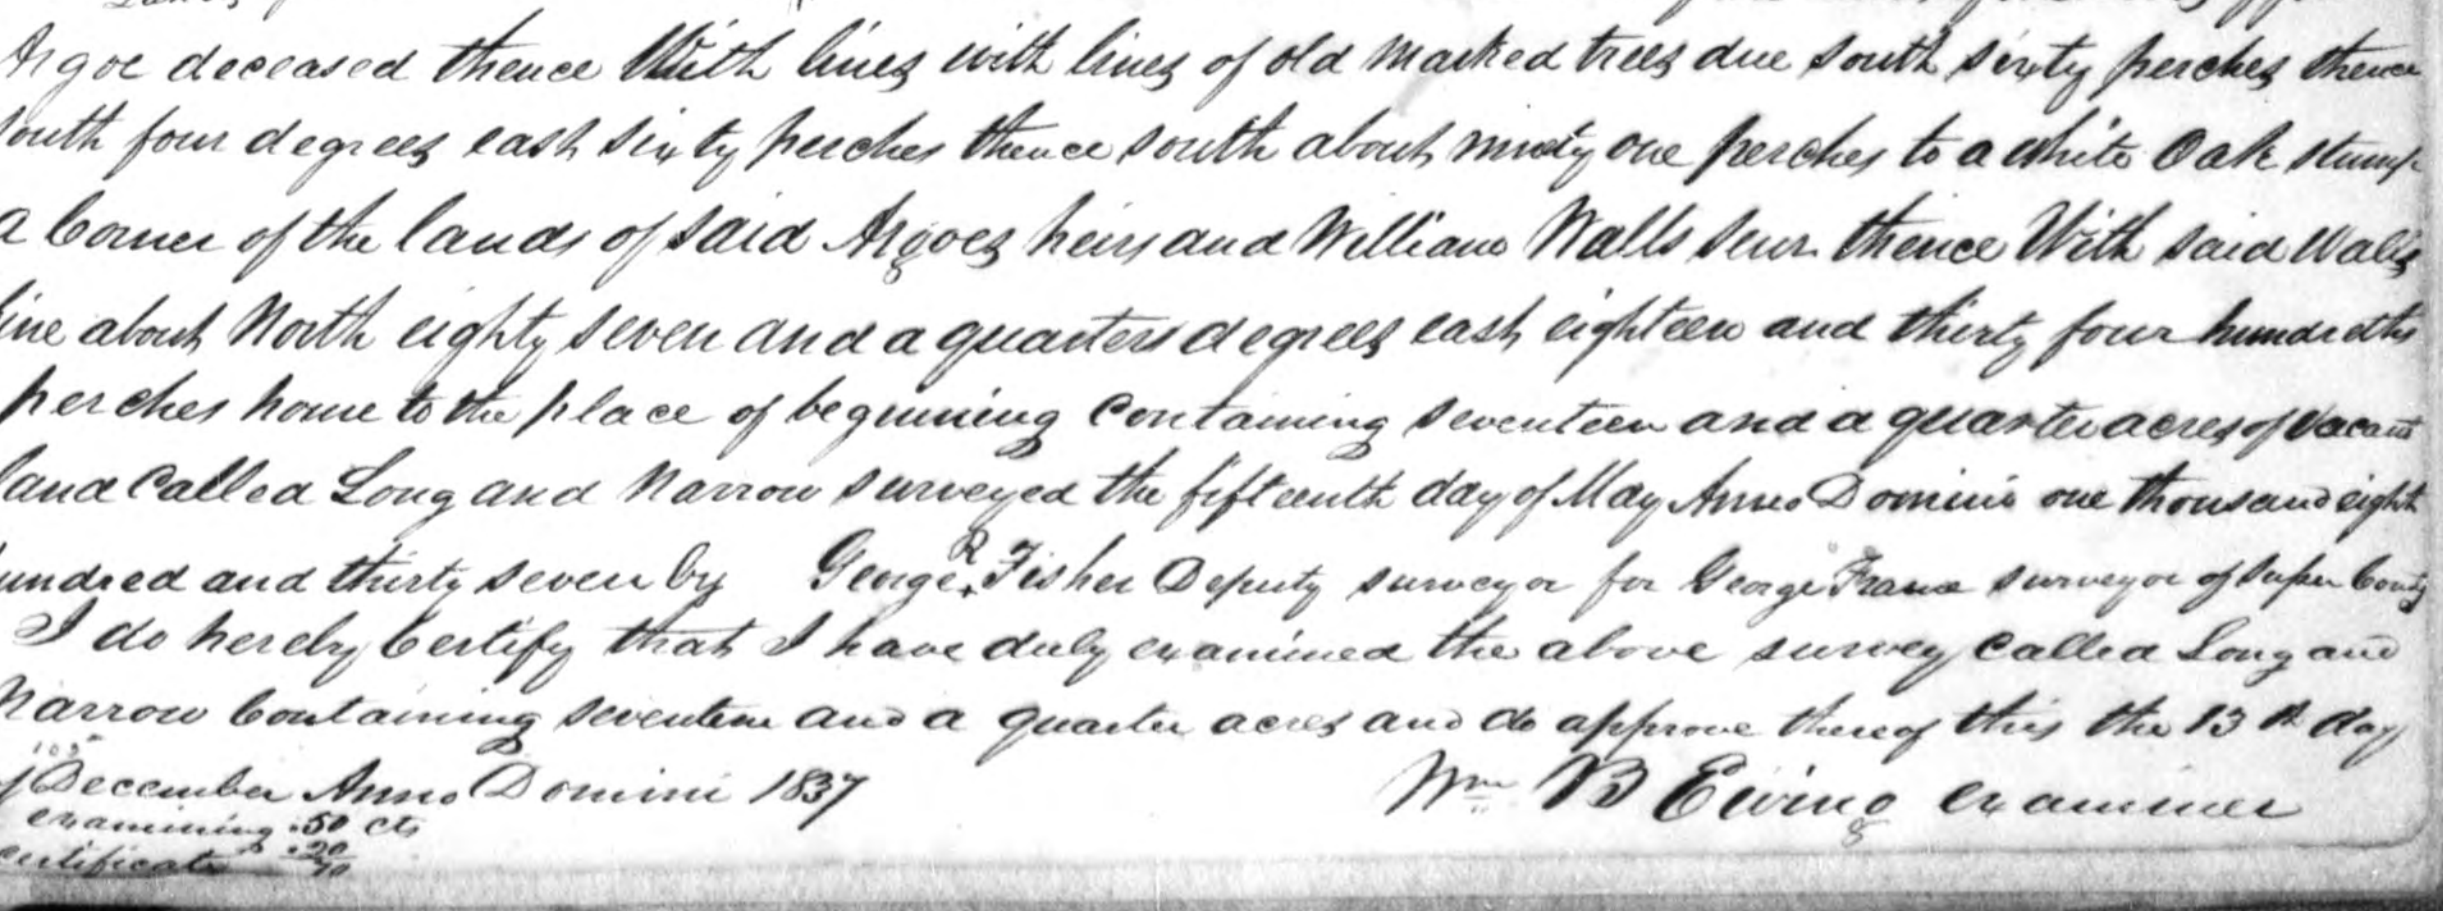 Argoe deceased thence With lines with lines of old marked trees due south sixty perches thence
south four degrees east sixty perches thence south about ninety one perches to a white Oak stump
a Corner of the lands of said Argoes heirs and William Walls senr. thence With said Walls
line about North eighty seven and a quarters degrees east eighteen and thirty four hundredths
perches home to the place of beginning Containing seventeen and a quarter acres of vacant
land Called Long and Narrow surveyed the fifteenth day of May Anno Domini one thousand eight
hundred and thirty seven by George R Fisher Deputy surveyor for George Frame surveyor of Sussex County
I do hereby Certify that I have duly examined the above survey Called Long and
Narrow Containing seventeen and a quarter acres and do approve thereof this the 13th day
105
of December Anno Domini 1837 Wm B Ewing examiner
examining .50 cts
certificate .20
70